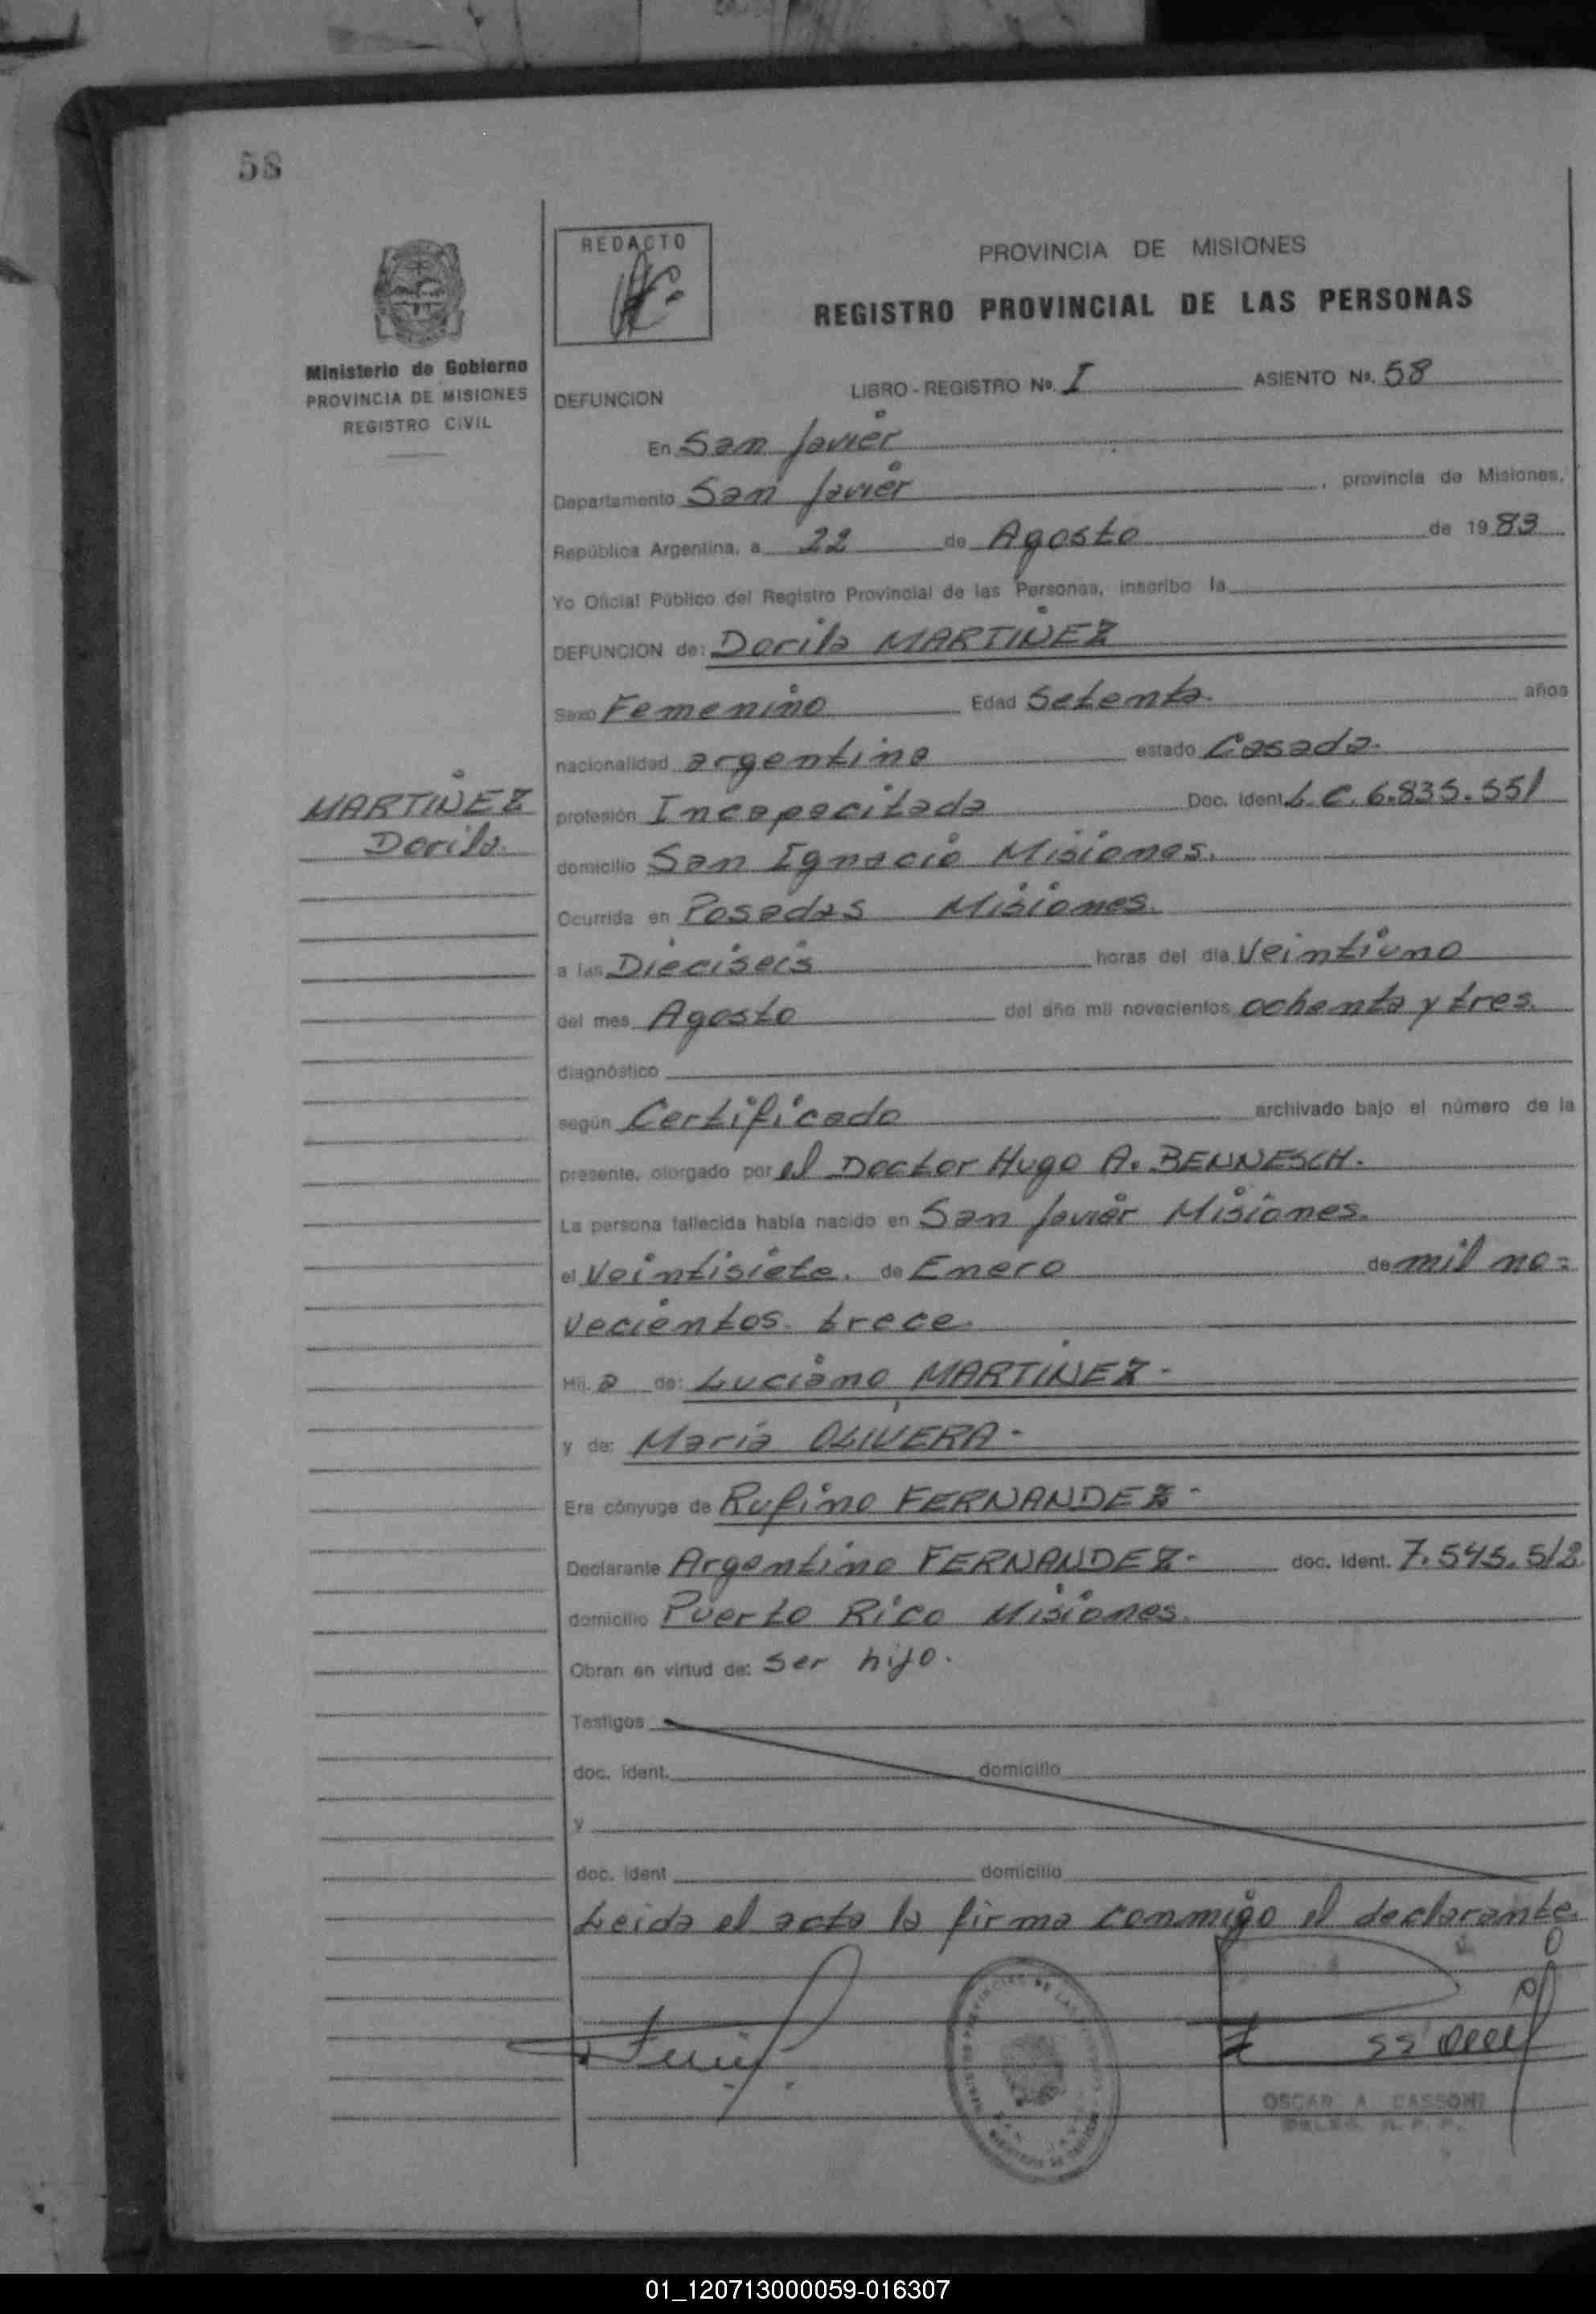 58
REDACTO
PROVINCIA DE MISIONES
REGISTRO PROVINCIAL DE LAS PERSONAS
Ministerio de Gobierno
PROVINCIA DE MISIONES
REGISTRO CIVIL
DEFUNCION LIBRO - REGISTRO Nº. I ASIENTO Nº. 58
En San Javier
Departamento San Javier, provincia de Misiones,
República Argentina, a 22 de Agosto de 1983
Yo Oficial Público del Registro Provincial de las Personas, inscribo la
DEFUNCION de: Dorila MARTINEZ
Sexo Femenino Edad Setenta. años
nacionalidad argentina estado Casada.
MARTINEZ
Dorila.
profesión Incapacitada Doc. Ident L.C. 6.835.551
domicilio San Ignacio Misiones.
Ocurrida en Posadas Misiones.
a las Dieciseis horas del día Veintiuno
del mes Agosto del año mil novecientos ochenta y tres.
diagnóstico
según Certificado archivado bajo el número de la
presente, otorgado por el Doctor Hugo A. BENNESCH.
La persona fallecida había nacido en San Javier Misiones.
el Veintisiete. de Enero de mil no=
vecientos trece.
Hij. a de: Luciano MARTINEZ -
y de: María OLIVERA -
Era cónyuge de Rufino FERNANDEZ -
Declarante Argentino FERNANDEZ - doc. Ident. 7.545.512
domicilio Puerto Rico Misiones.
Obran en virtud de: Ser hijo.
Testigos
doc. ident. domicilio
y
doc. ident domicilio
Leida el acta la firma conmigo el declarante.
OSCAR A. CASSONI
01_120713000059-016307